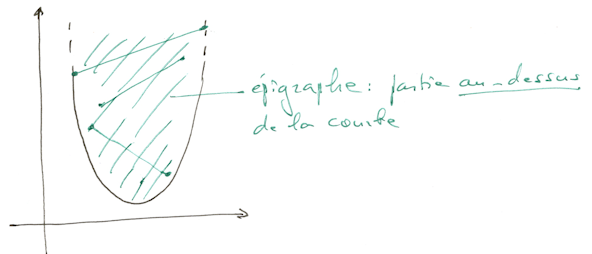 épigraphe : partie au-dessus
de la courbe